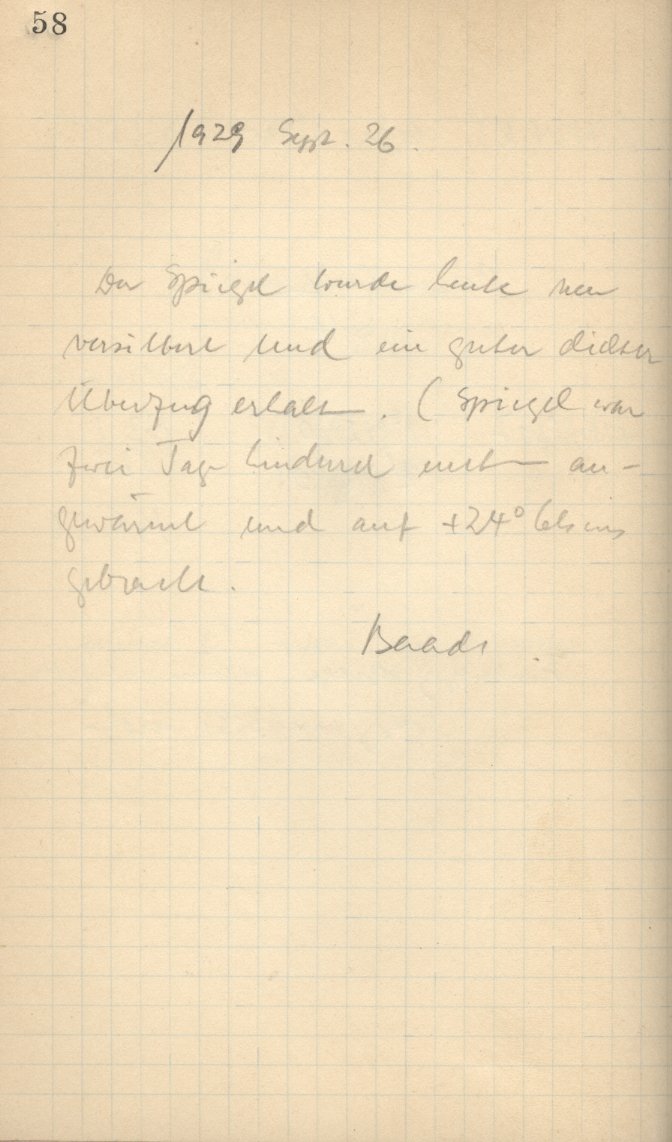 58
1929 Sept. 26.
Der Spiegel wurde heute neu
versilbert und ein guter dichter
Überzug erhalten. (Spiegel war
zwei Tage hindurch an-
gewärmt und auf +24° Celsius
gebracht.
Baade